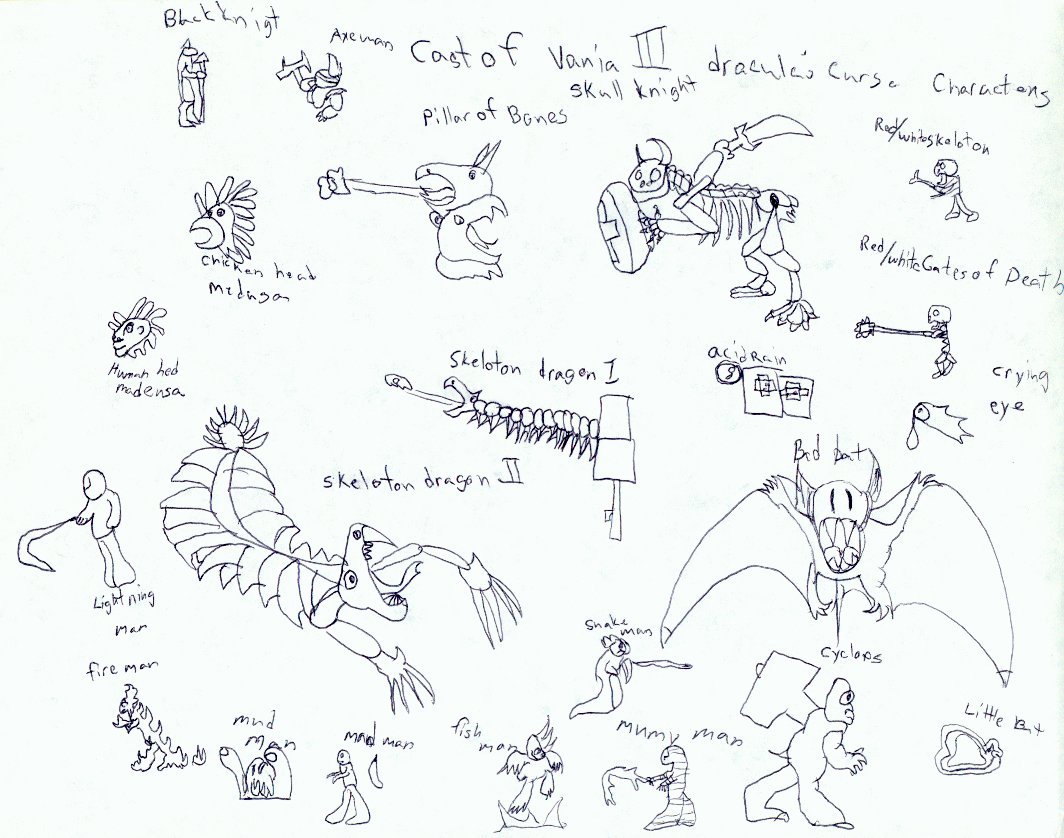 Black Knigt
Axeman
Cast of Vania III dracula's Curse Charactors
Skull Knight
Pillar of Bones
Red/white skeloton
Chicken head
Medusan
Red/white Gates of Death
Human hed
madensa
Skeloton dragon I
acid Rain
crying
eye
Skeloton dragon II
Bad bat
Lightning
man
Snake
man
Cyclops
fire man
mud
man
mud man
fish
man
mumy man
Little bat